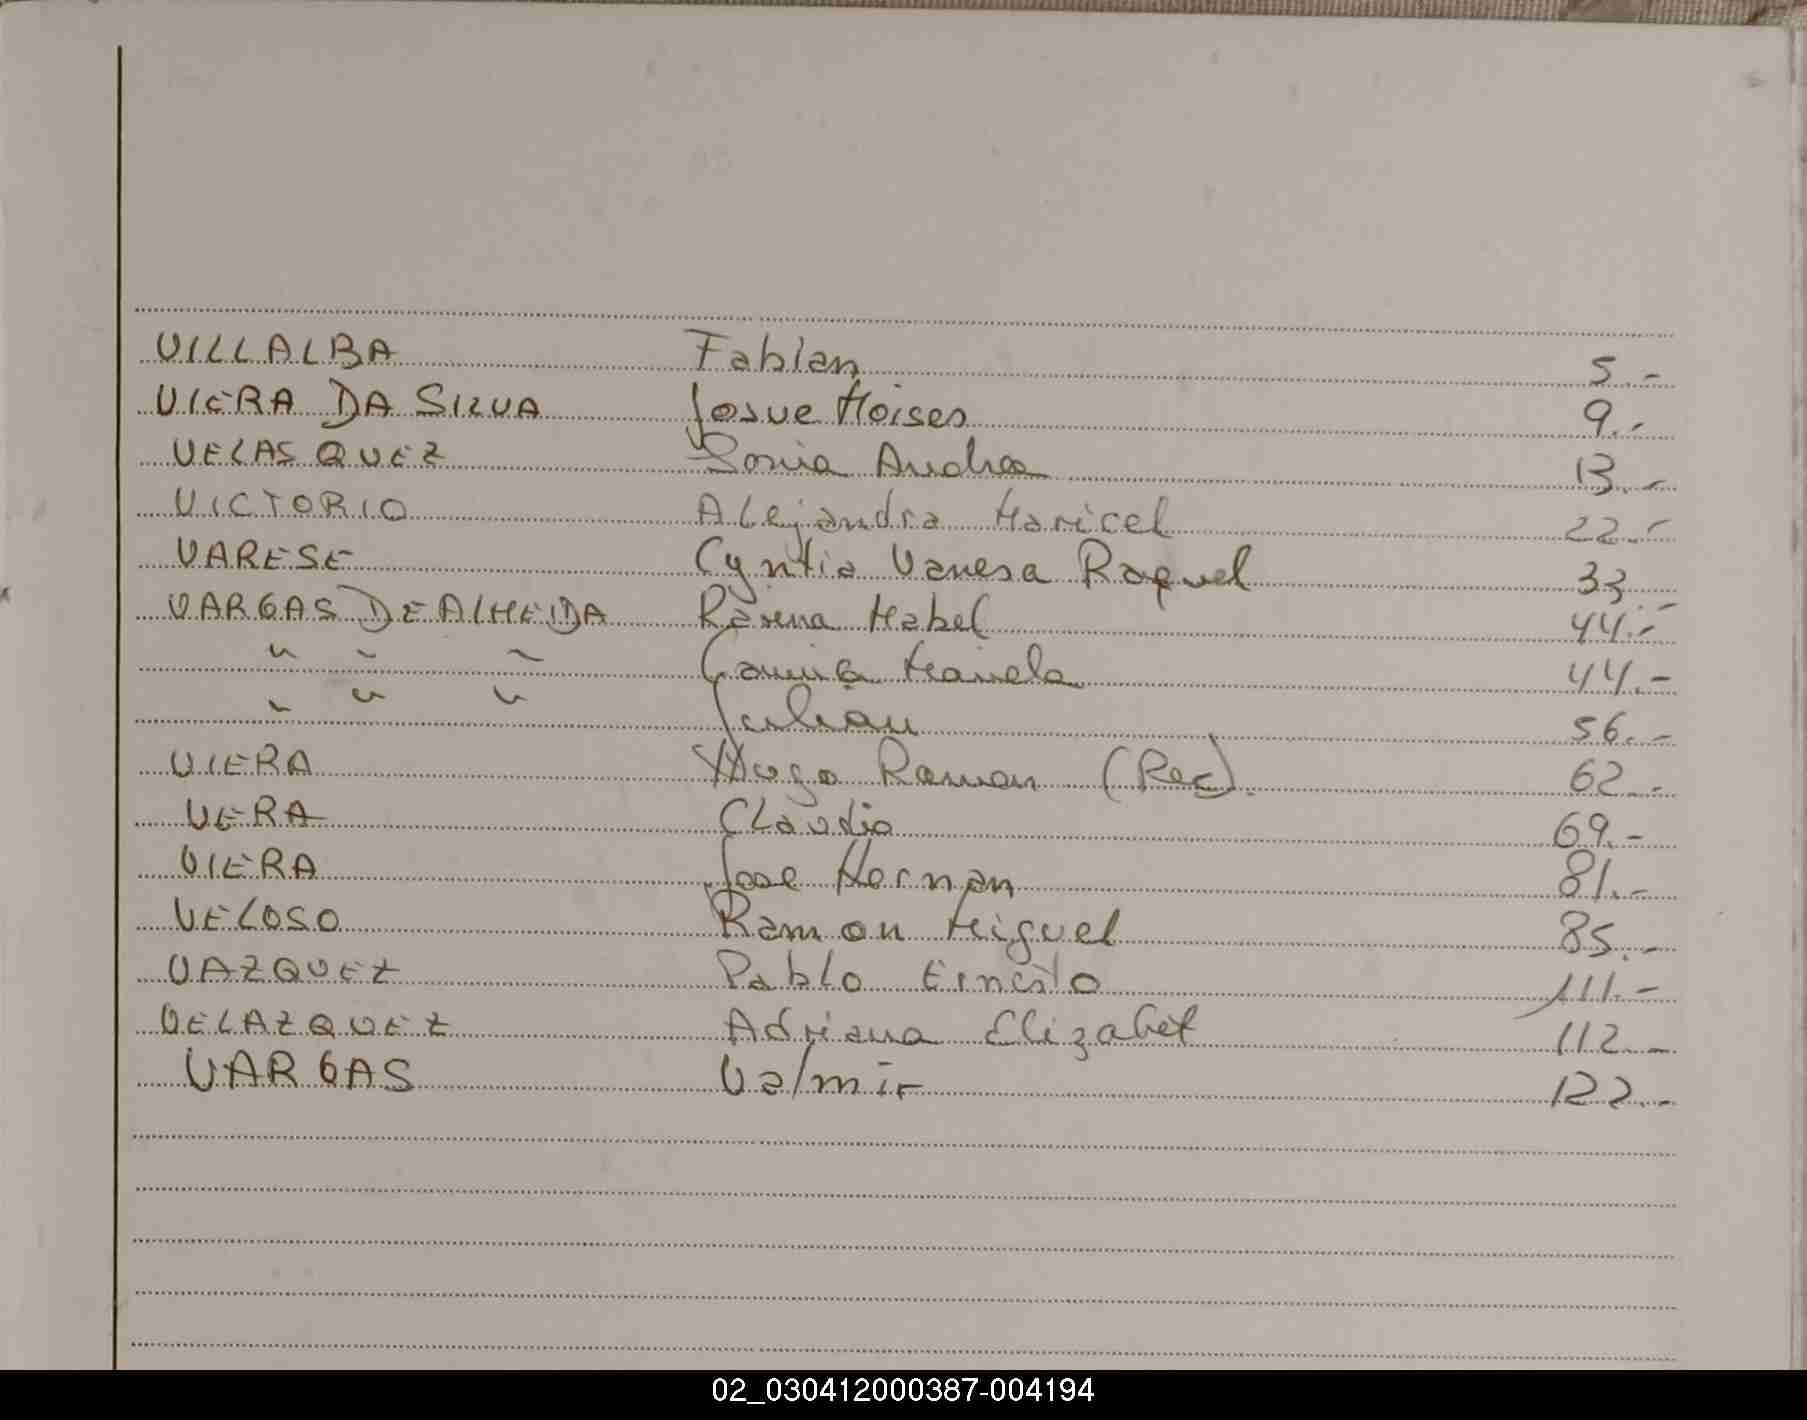 VILLALBA Fabian 5.-
VIERA DA SILVA Josue Moises 9.-
VELASQUEZ Sonia Andrea 13.-
VICTORIO Alejandra Maricel 22.-
VARESE Cyntia Vanesa Raquel 33.-
VARGAS DE ALMEIDA Mabel 44.-
" " " Mariela 44.-
" " " Julian 56.-
VIERA Hugo Ramon (Rec). 62.-
VERA Claudia 69.-
VIERA Jose Hernan 81.-
VELOSO Ramon Miguel 85.-
VAZQUEZ Pablo Ernesto 111.-
VELAZQUEZ Adriana Elizabet 112.-
VARGAS Valmir 122.-
02_030412000387-004194